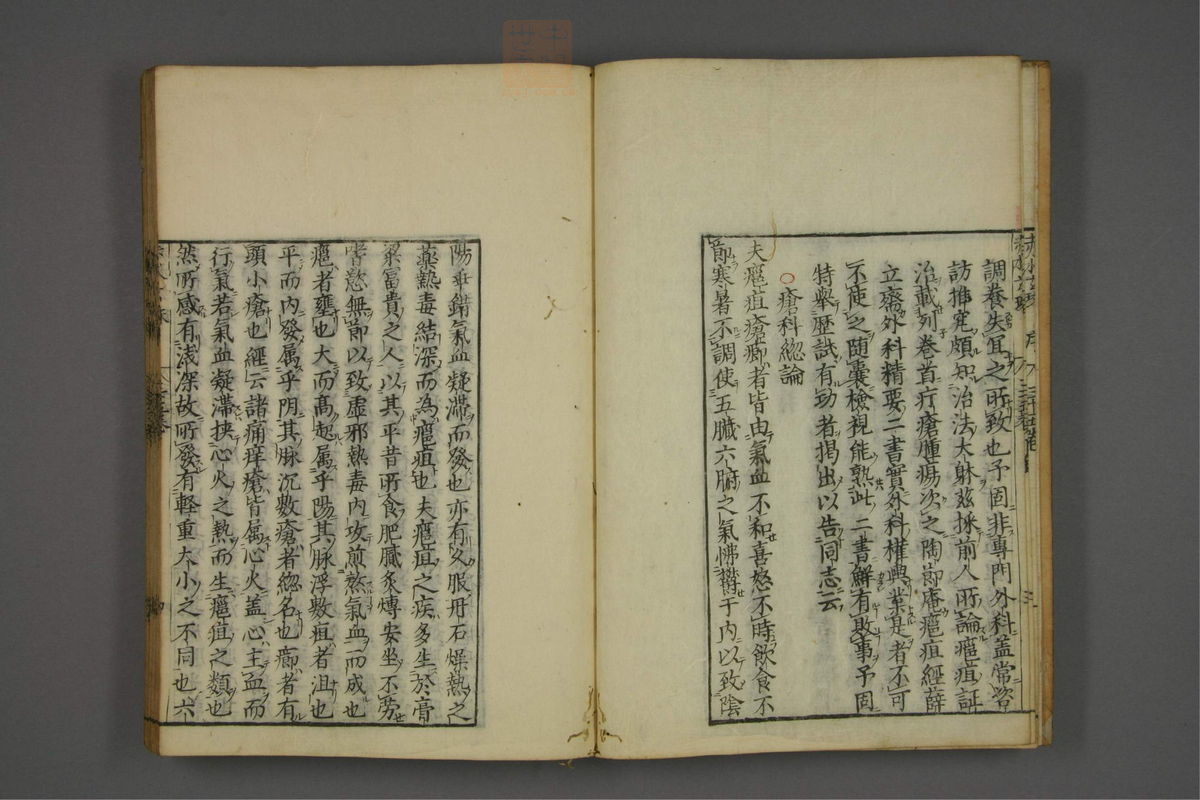 調養失宜之所致也予固非專門外科蓋常咨
訪推究頗知治法大躰玆採前人所論癰疽証
治載列卷首疔瘡腫瘍次之陶節庵癰疽經薛
立齋外科精要二書實外科權輿業是者不可
不従之随囊檢視能熟此二書鮮有敗事予固
特舉歴試有功者掲出以告同志云
瘡科総論
夫癰疽瘡癤者皆由氣血不和喜怒不時飲食不
節寒暑不調使五臓六腑之氣怫欝于内以致陰
陽乖錯氣血凝滞而發也亦有久服丹石燥熱之
藥熱毒結深而為癰疽也夫癰疽之疾多生於膏
粱富貴之人以其平昔所食肥膩炙煿安坐不労
嗜慾無節以致虚邪熱毒内攻煎熬氣血而成也
癰者壅也大而髙起属乎陽其脉浮數疽者沮也
平而内發属乎阴其脉沉數瘡者総名也癤者有
頭小瘡也經云諸痛痒瘡皆属心火蓋心主血而
行氣若氣血凝滞挟心火之熱而生癰疽之類也
然所感有浅深故所發有軽重大小之不同也六